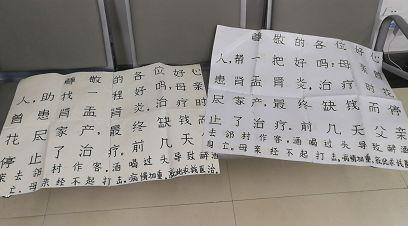 尊敬的各位好心
人,助我一程好吗?母亲
曾患肾盂肾炎,治疗时
花尽家产,最终缺钱而
停止了治疗.前几天父亲
去邻村作客,酒喝过头导致醉酒
亡.母亲经不起打击.病情加重,钱医治.
尊敬的各位好心
人,帮一把好吗:母亲
曾患肾盂肾炎,治疗时花
尽家产,最终缺钱而停
止了治疗.前几天父亲
去邻村作客,酒喝过头导致醉酒
亡.母亲经不起打击.病情加重,钱医治.